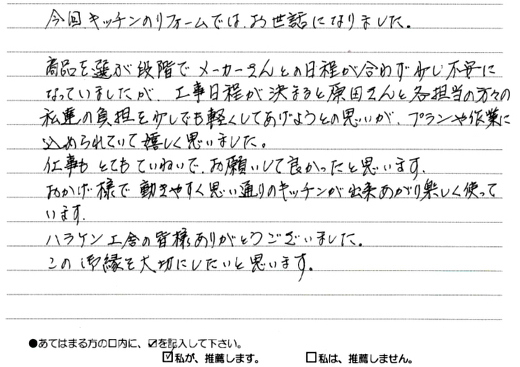 今回キッチンのリフォームでは、お世話になりました。
商品を選ぶ段階でメーカーさんとの日程が合わず少し不安に
なっていましたが、工事日程が決まると原田さんと各担当の方々の
私達の負担を少しでも軽くしてあげようとの思いが、プランや作業に
込められていて嬉しく思いました。
仕事もとてもていねいで、お願いして良かったと思います。
おかげ様で動きやすく思い通りのキッチンが出来あがり楽しく使って
います。
ハラケン工舎の皆様ありがとうございました。
この御縁を大切にしたいと思います。
●あてはまる方の口内に、☑を記入して下さい。
☑私が、推薦します。 □私は、推薦しません。